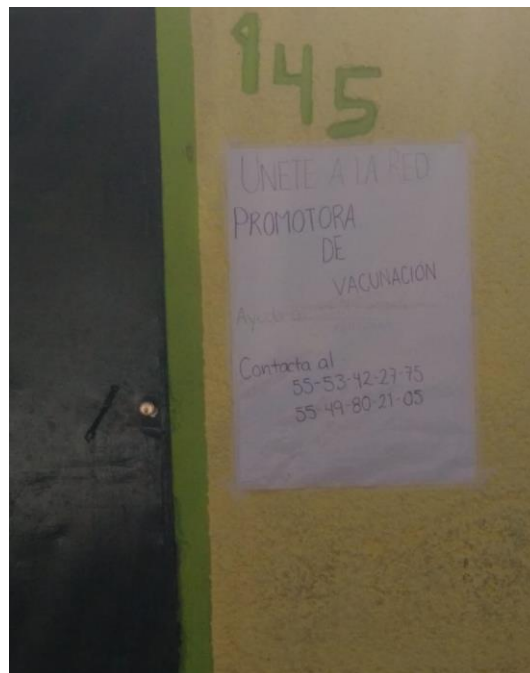 145
ÚNETE A LA RED
PROMOTORA
DE
VACUNACIÓN
Contacta al
55-53-42-27-75
55-49-80-21-05